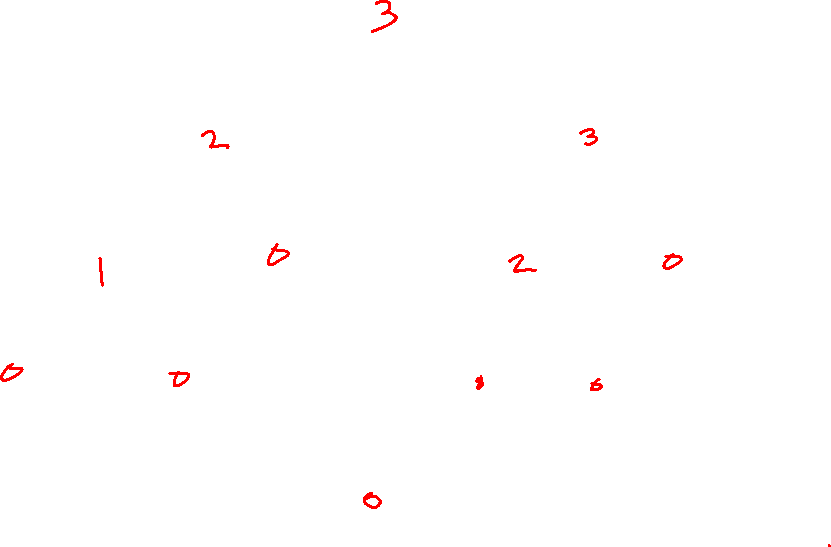 3
2 3
1 0 2 0
0 0 0
0